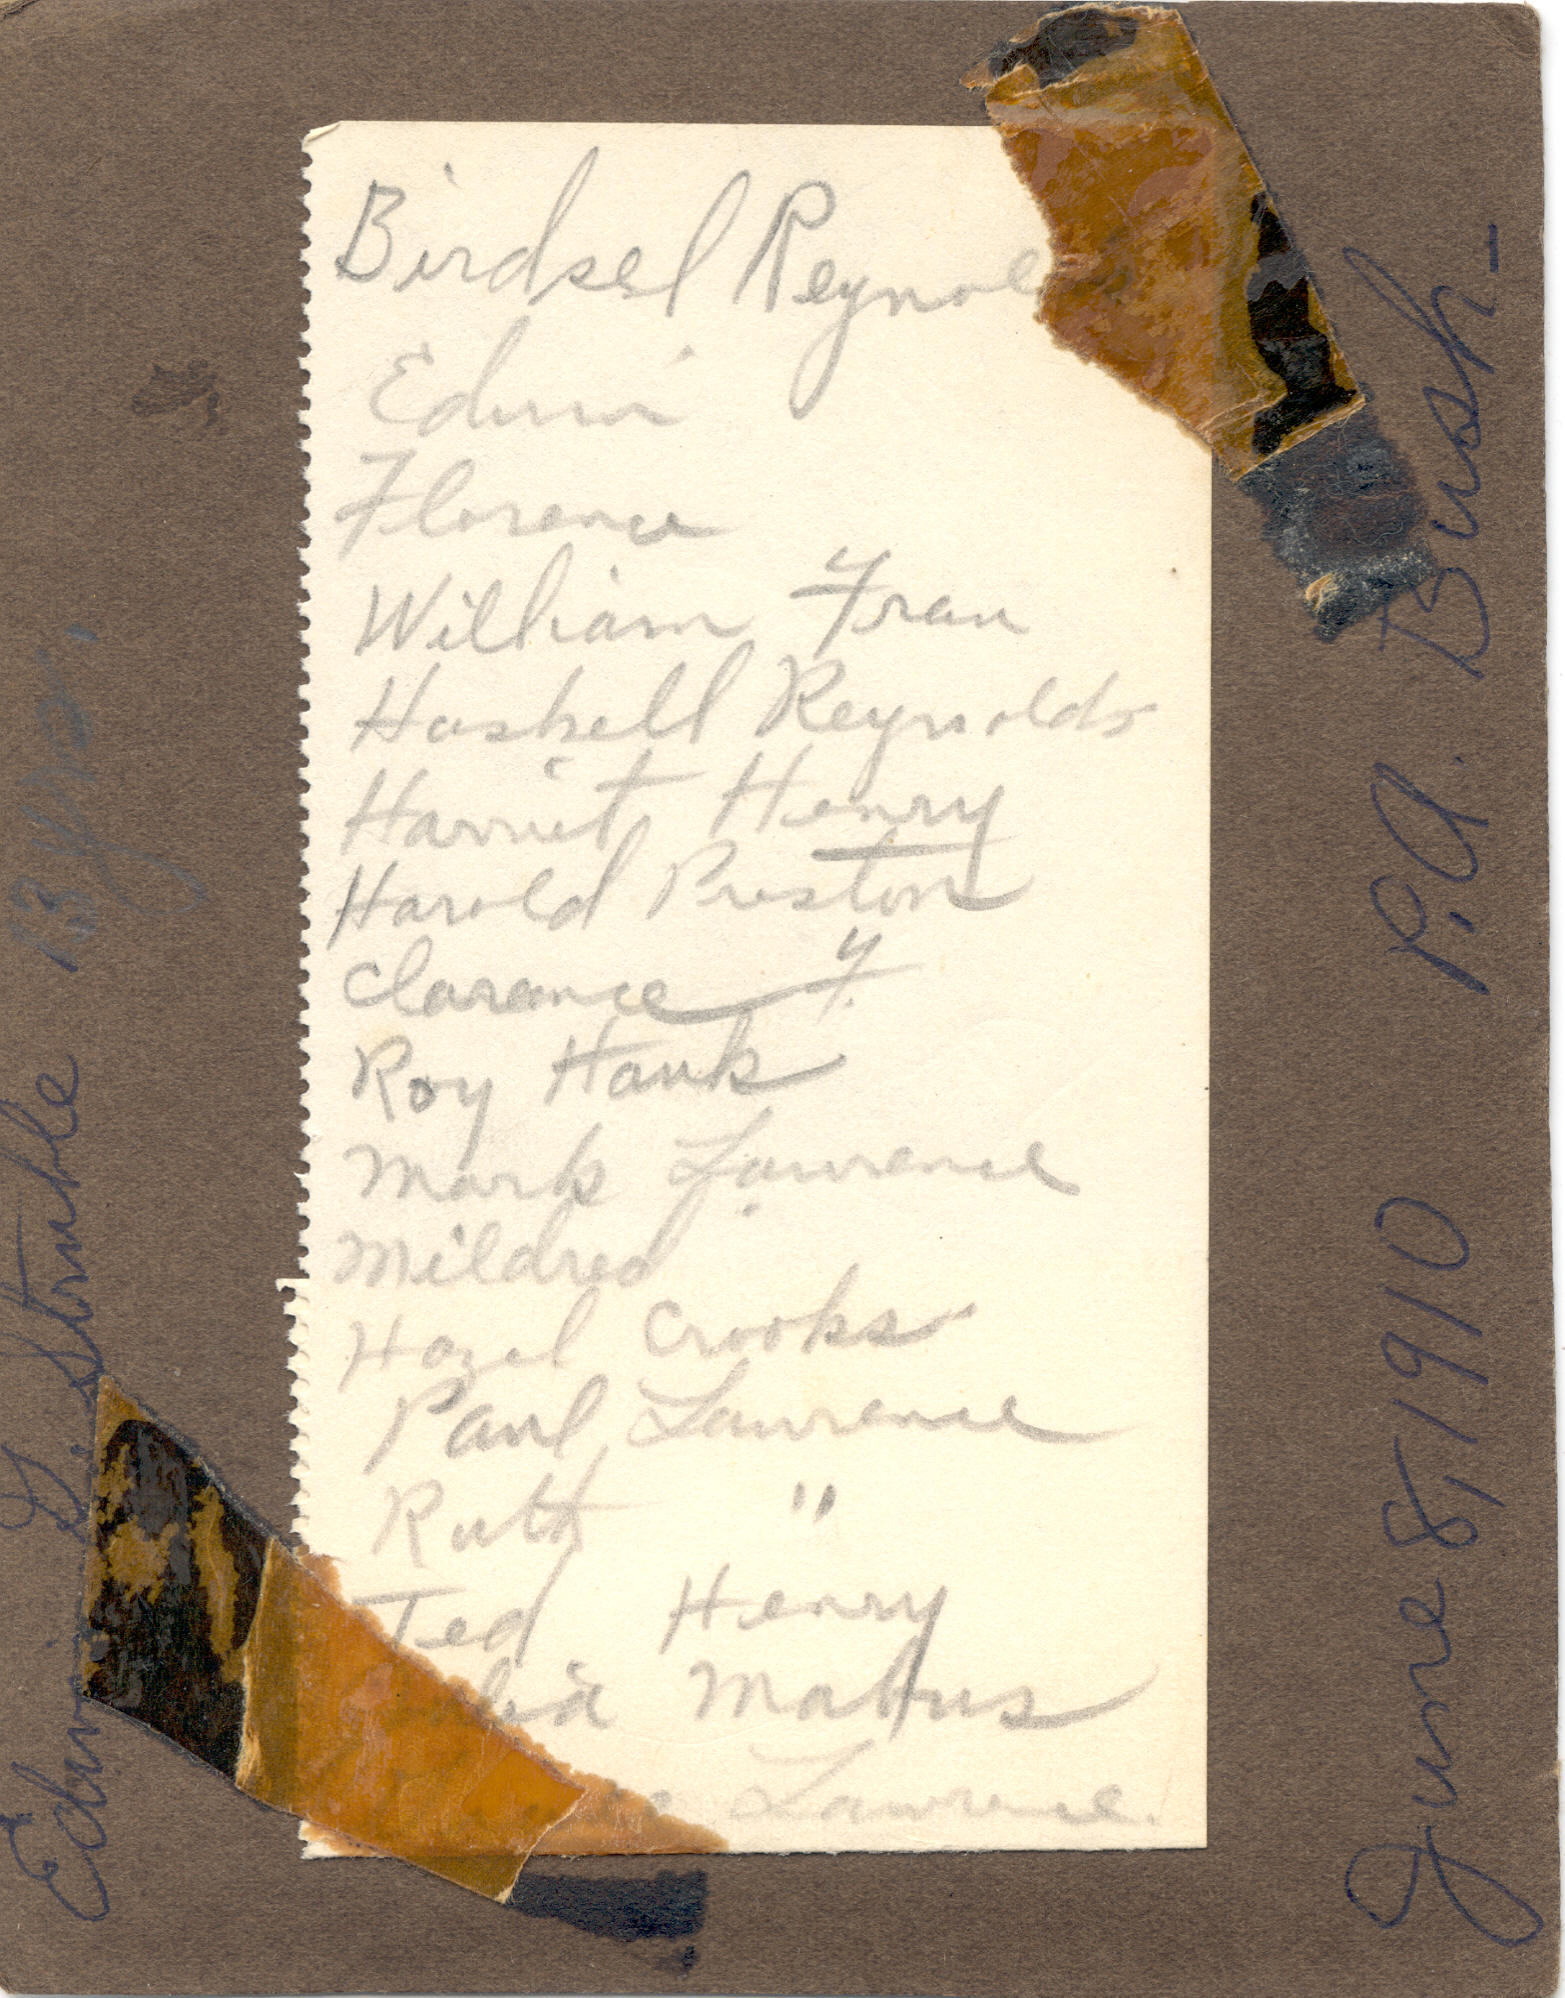 Birdsel Reynol
Edwin
Florence
William Fran
Haskell Reynolds
Harriet Henry
Harold Preston
Clarence F.
Roy Hank
Mark Lawrence
Mildred
Hazel Crooks
Paul Lawrence
Ruth "
Ted Henry
Lawrence.
Edwin G. Struble 13 yrs.
June 8, 1910 P.A. Bush-